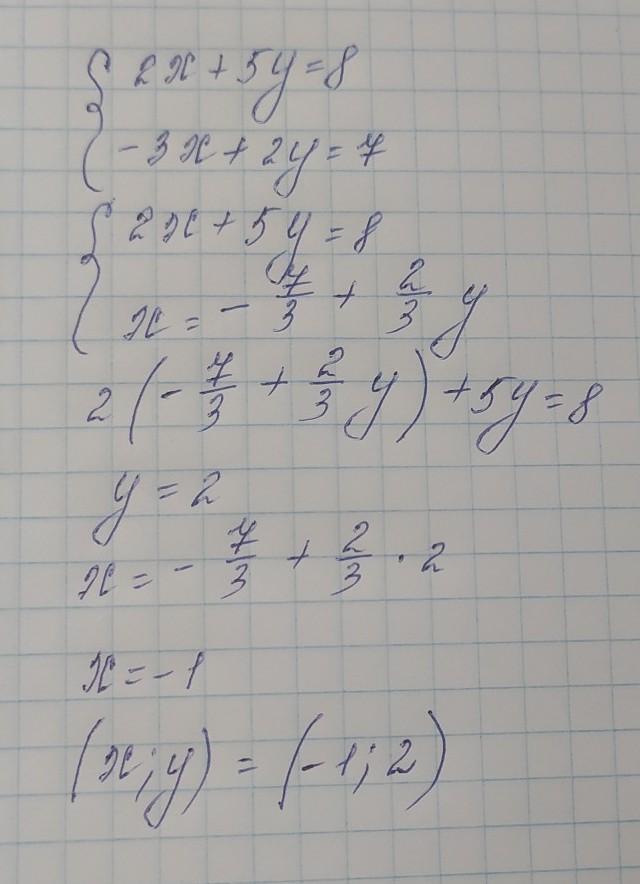 { 2x + 5y = 8
-3x + 2y = 7
{ 2x + 5y = 8
x = - 7/3 + 2/3 y
2(- 7/3 + 2/3 y) + 5y = 8
y = 2
x = - 7/3 + 2/3 · 2
x = -1
(x; y) = (-1; 2)